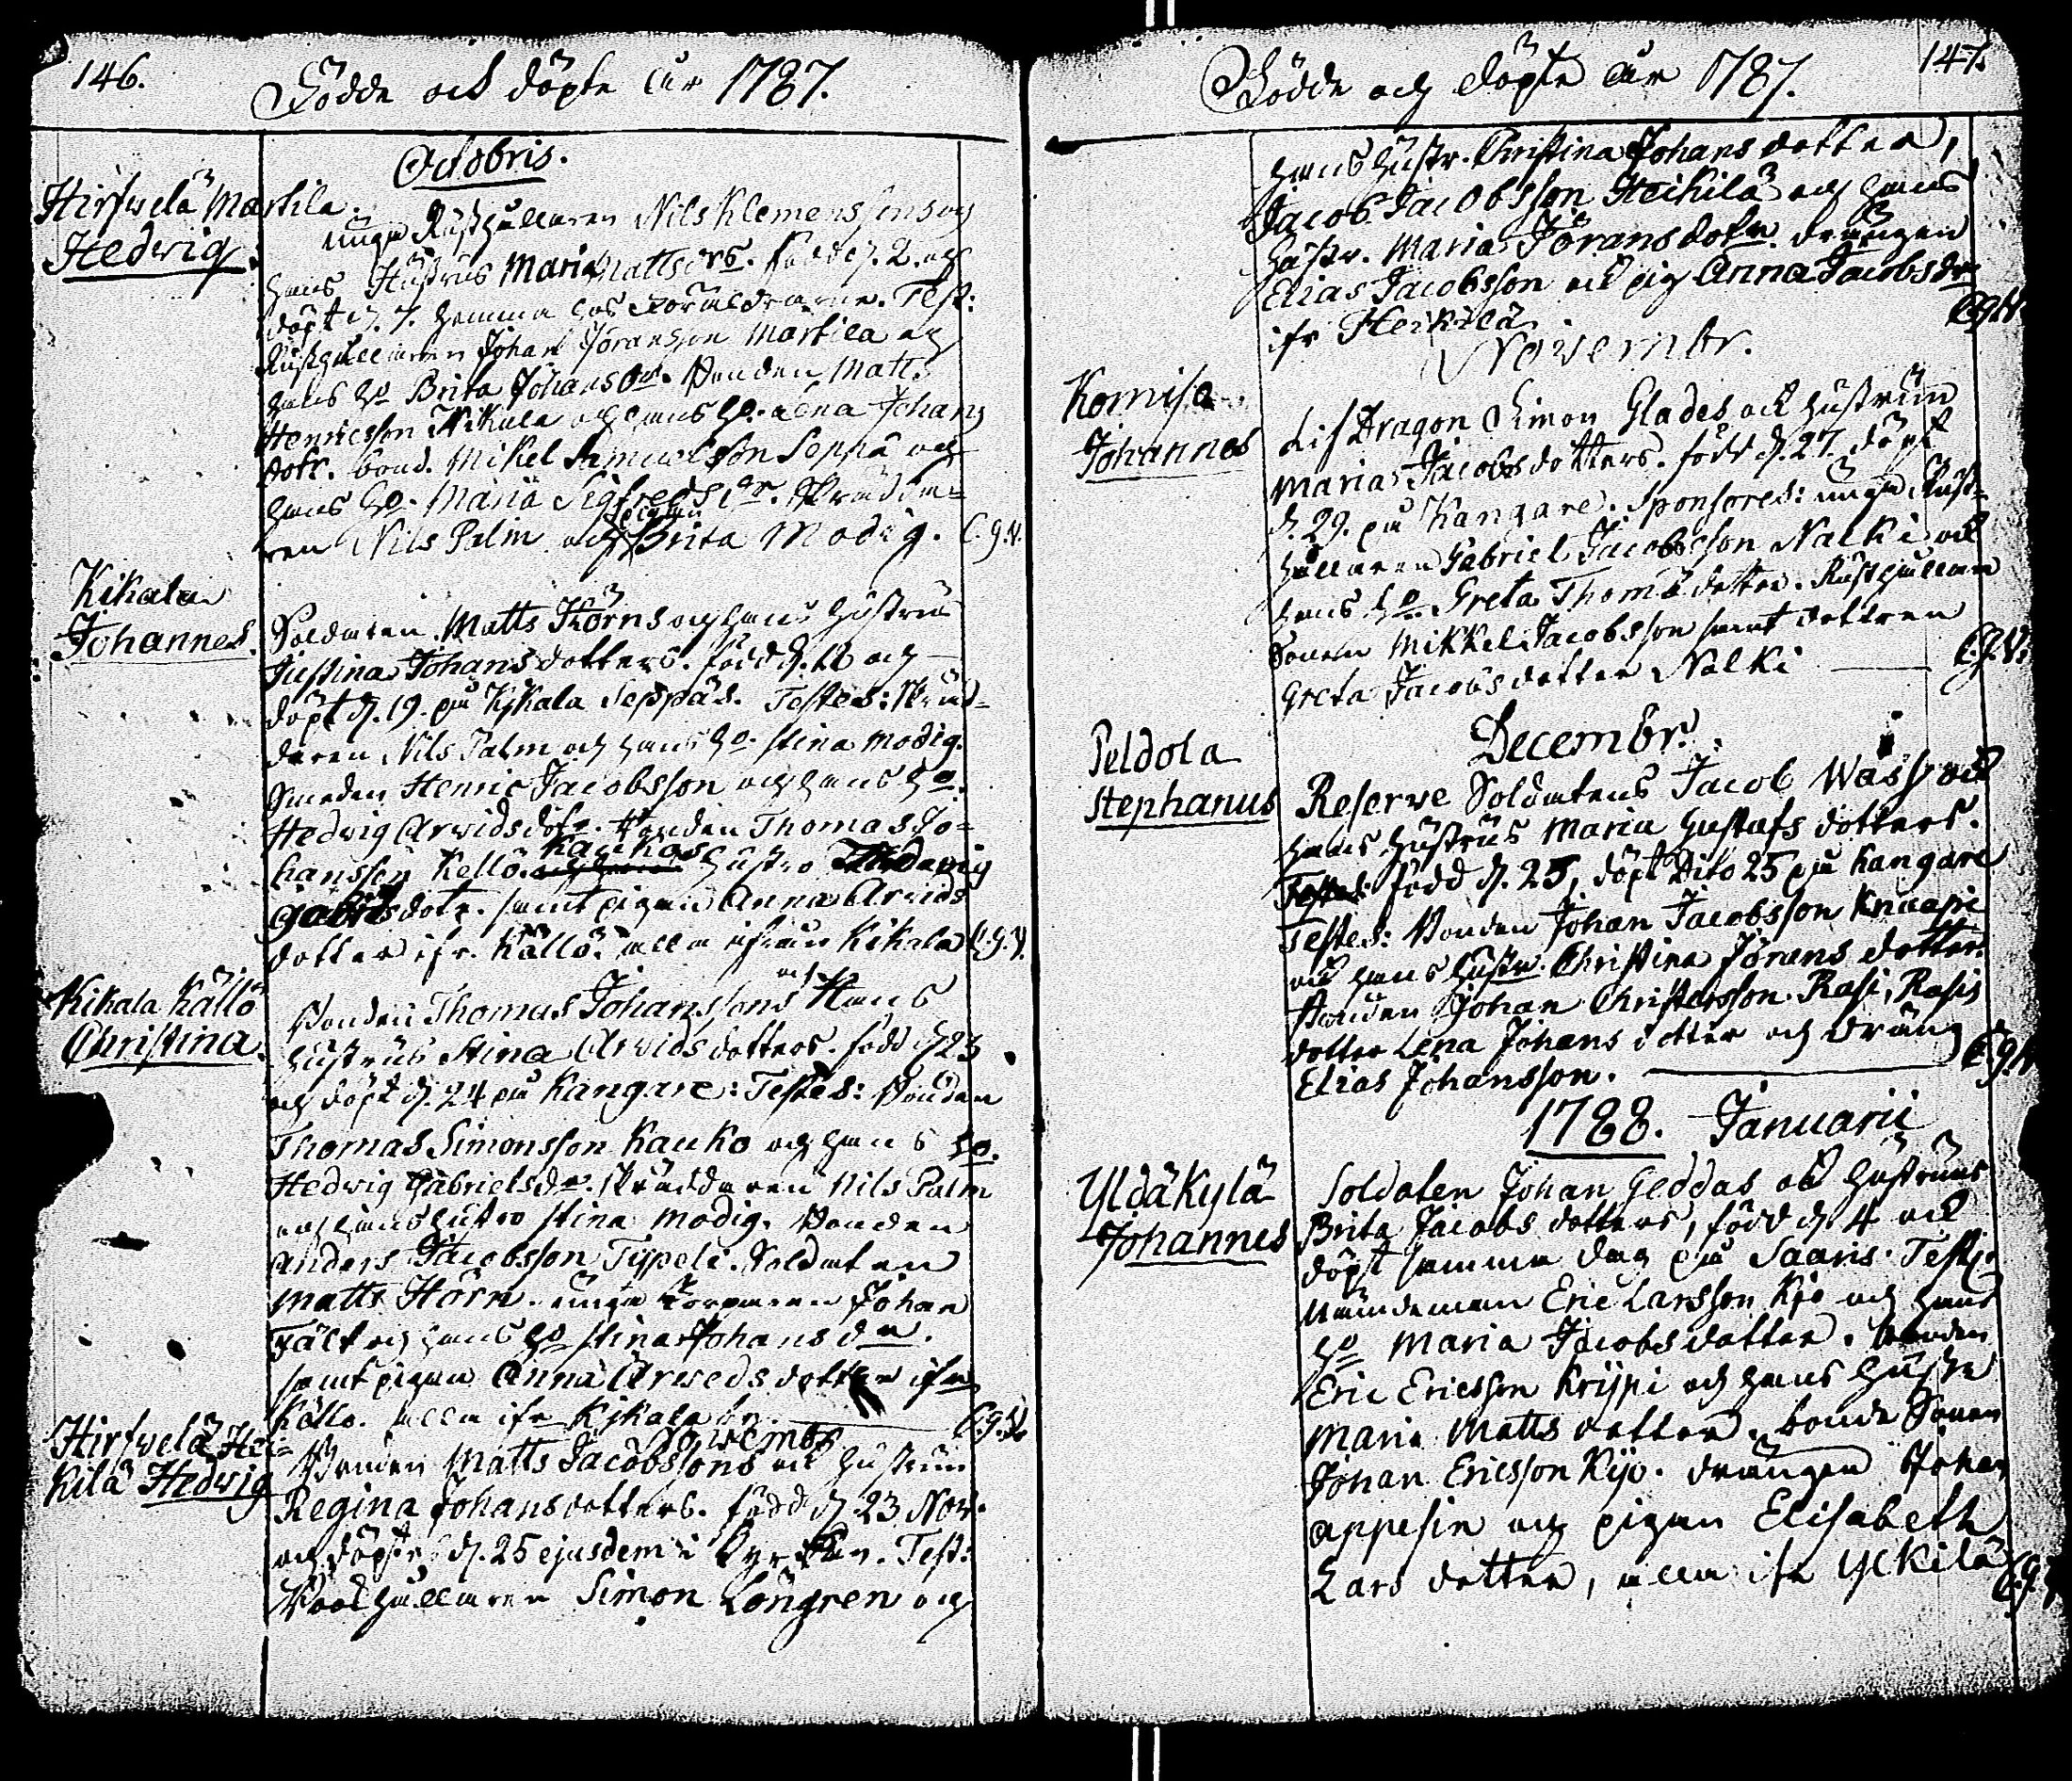 146.
Födde och döpte åhr 1787.
Octobris.
Hirfwelä Martila.
Hedwig.
unga Rusthållaren Nils Klemens sons och
hans Hustrus Maria Mattsdrs. född d. 2. och
döpt d. 7. hemma hos Föräldrarne. Test:
Rusthållaren Johan Jöransson Martila och
hans ho Brita Johansdr. Bonden Matts
Henricsson Kikula och hans ho. Lena Johans
dotr. bond. Mikel Samuelsson Seppä och
hans ho. Maria Sigfredsdr. Skrädda-
ren Nils Palm och Brita Modig. C.g.V.
Kikala
Johannes.
Soldaten Matts Hörns och hans hustru
Justina Johansdotters. född d. 18 och
döpt d. 19. på Kikala Seppäs. Testes: Skräd-
daren Nils Palm och hans ho. Stina Modig.
Smeden Henric Jacobsson och hans ho.
Hedwig Arwidsdotr. Bonden Thomas Jo-
hansson Kellö. Kaukos hustro Hedewig
Gabrielsdotr. samt pigan Anna Arwids
dotter ifr. Källö. alla ifrån Kikala C.g.V.
Kikala Källö
Christina.
Bonden Thomas Johanssons och Hans
hustrus Stina Arvidsdotters. född d 23
och döpt d. 24 på Kangare: Testes: Bonden
Thomas Simonsson Kauko och hans ho.
Hedwig Gabrielsdr. Skräddaren Nils Palm
och hans hustro Stina Modig. Bonden
Anders Jacobsson Typeli. Soldaten
Matts Hörn. unga Torparen Johan
Fält och hans ho Stina Johansdr.
samt pigan Anna Arwedsdotter ifr
Källö. alla ifr Kikala by. C.g.V.
Novembr
Hirfwelä Hei-
kilä Hedwig
Bonden Matts Jacobssons och hustrun
Regina Johansdotters. född d. 23 Nov.
och döpte d. 25 ejusdem i Kyrkan. Test:
Rusthållaren Simon Löngren och
147.
Födde och döpte åhr 1787.
hans hustr. Christina Johansdotter,
Jacob Jacobsson Heikilä och hans
hustr. Maria Jöransdotr. drängen
Elias Jacobsson och pig Anna Jacobsdr
ifr Heikilä C.g.V.
Novembr.
Komisa
Johannes
Lif Dragon Simon Glades och hustrun
Maria Jacobsdotters. född d. 27. döpt
d. 29. på Kangare. Sponsores: unga Rust-
hållaren Gabriel Jacobsson Nalki och
hans ho. Greta Thomædotter. Rusthållare
Sonen Mikkel Jacobsson samt dottren
Greta Jacobsdotter Nalki C.g.V.
Decembr.
Peldola
Stephanus
Reserve Soldatens Jacob Wass och
hans hustrus Maria Gustafs dotters.
född d. 25, döpt dito 25 på Kangare
Testes: Bonden Johan Jacobsson Knaapi
och hans hustr. Christina Jörans dotter.
Bonden Johan Christersson Rasi, Rasis
dotter Lena Johans dotter och dräng
Elias Johansson. C.g.V.
1788. Januarii
Yläkylä
Johannes
Soldaten Johan Geddas och hustruns
Brita Jacobs dotters, född d 4 och
döpt samma dag på Saaris. Test:
Nämndeman Eric Larsson Kyö och hans
ho Maria Jacobsdotter. Bonden
Eric Ericsson Krijpi och hans hustr
Maria Mattsdotter. bonde Sonen
Johan Ericsson Kijö. drängen Johan
Appesin och pigan Elisabeth
Lars dotter, alla ifr Ylkilä C.g.V.